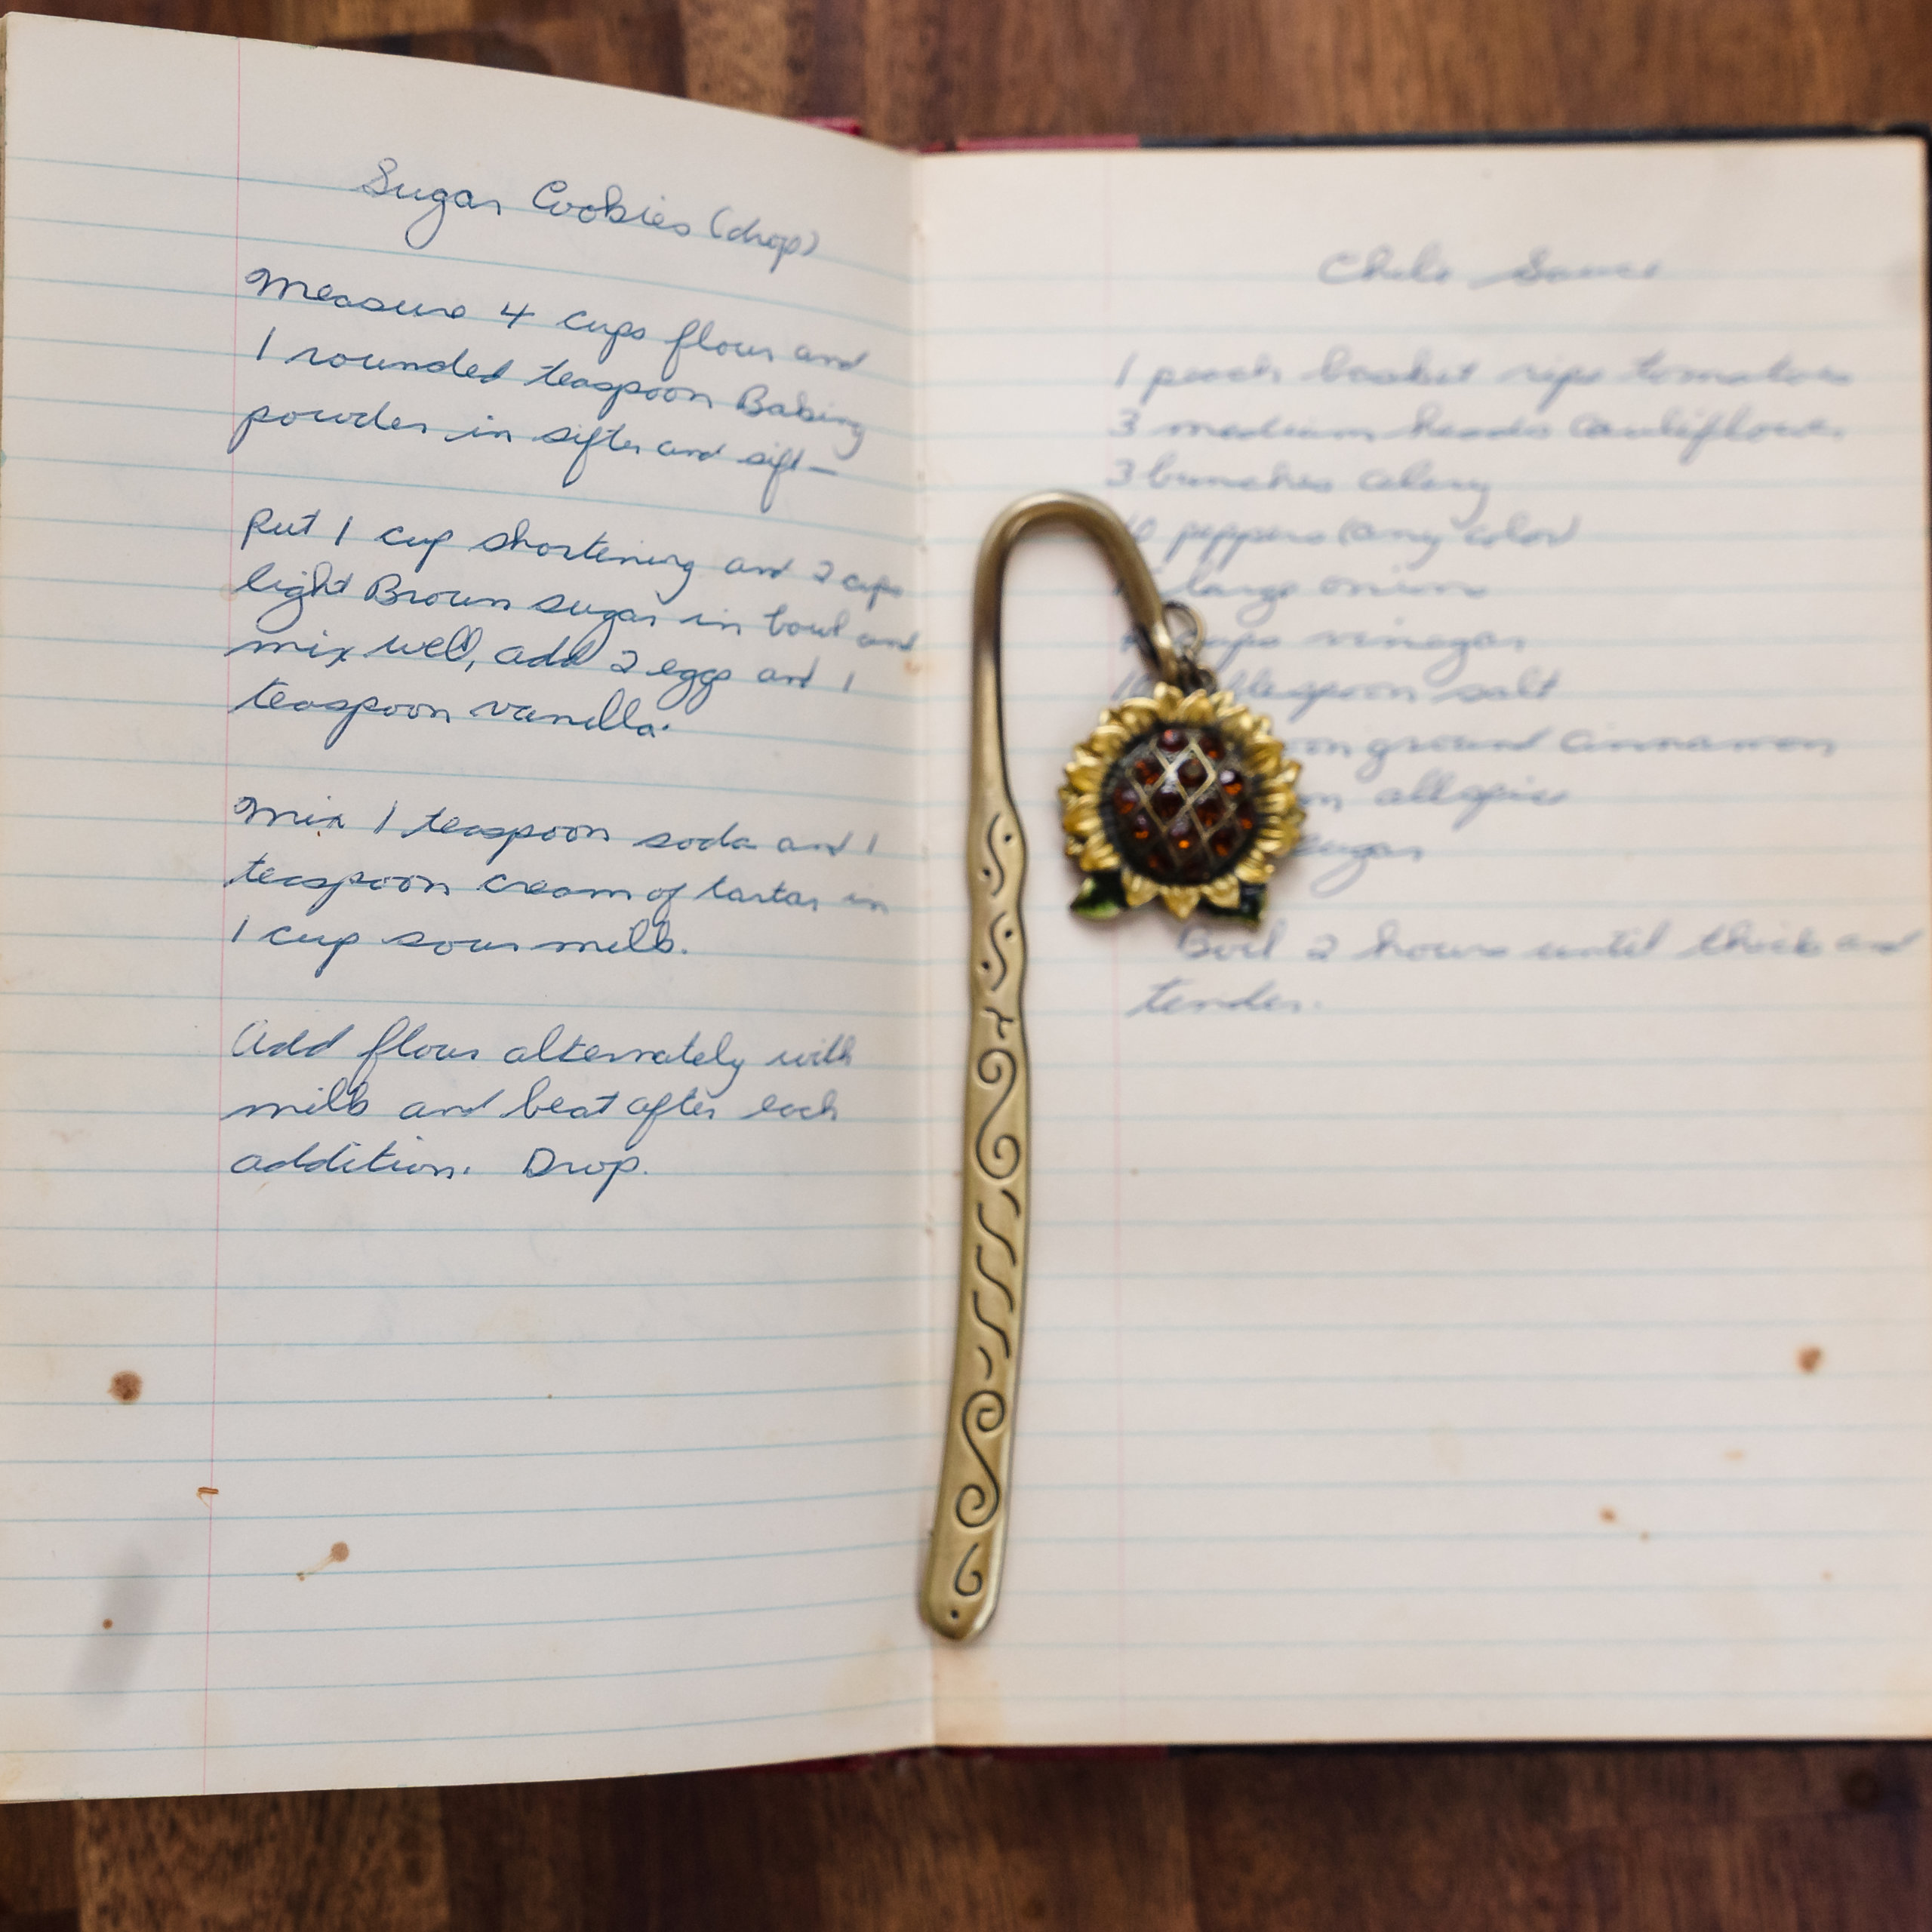 Sugar Cookies (drop)
Measure 4 cups flour and
1 rounded teaspoon Baking
powder in sifter and sift—
Put 1 cup shortening and 2 cups
light Brown sugar in bowl and
mix well, add 2 eggs and 1
teaspoon vanilla.
Mix 1 teaspoon soda and 1
teaspoon cream of tartar in
1 cup sour milk.
Add flour alternately with
milk and beat after each
addition. Drop.
Chile Sauce
1 peach basket ripe tomatoes
3 medium heads cauliflower
3 bunches celery
peppers (any color)
large onions
cups vinegar
salt
ground cinnamon
allspice
sugar
Boil 2 hours until thick and
tender.